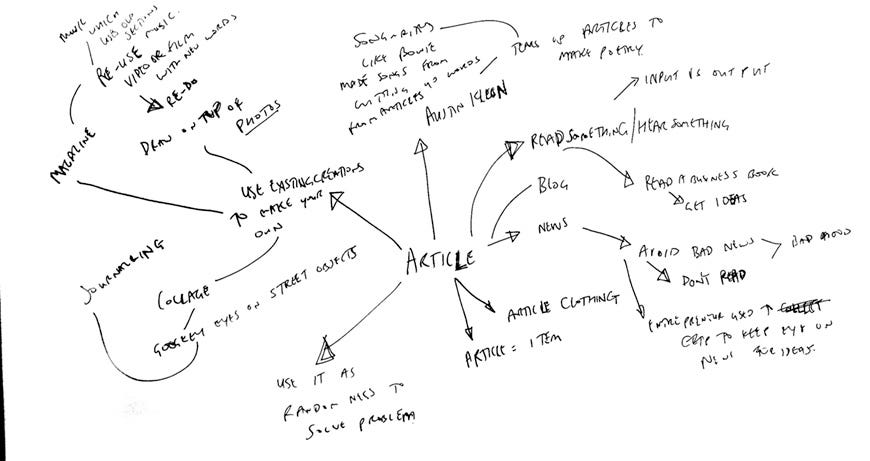 WHICH
RE-USE MUSIC
VIDEO OR FILM
WITH NEW WORDS
RE-DO
DRAW ON TOP OF
PHOTOS
MAGAZINE
USE EXISTING CREATIONS
TO MAKE YOUR
OWN
JOURNALLING
COLLAGE
GOOGLEY EYES ON STREET OBJECTS
USE IT AS
RANDOMNESS TO
SOLVE PROBLEM
SONGWRITERS
LIKE BOWIE
MADE SONGS FROM
CUTTING
FROM ARTICLES
WORDS
TEARS UP ARTICLES TO
MAKE POETRY
AUSTIN KLEON
INPUT VS OUTPUT
READ SOMETHING/HEAR SOMETHING
BLOG
READ A BUSINESS BOOK
GET IDEAS
NEWS
AVOID BAD NEWS
BAD MOOD
DON'T READ
ARTICLE
ARTICLE CLOTHING
ARTICLE = ITEM
ENTREPRENEUR USED
TO KEEP EYE ON
NEWS FOR IDEAS.